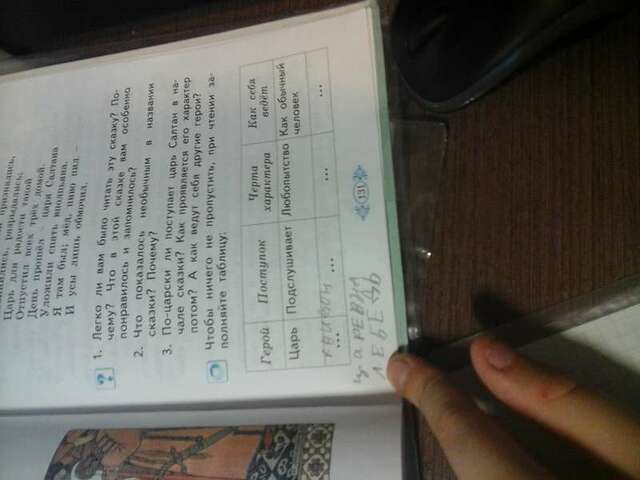 признались,
разрыдались;
Царь для радости такой
Отпустил всех трёх домой.
День прошёл – царя Салтана
Уложили спать вполпьяна.
Я там был; мёд, пиво пил –
И усы лишь обмочил.
? 1. Легко ли вам было читать эту сказку? По-
чему? Что в этой сказке вам особенно
понравилось и запомнилось?
2. Что показалось необычным в названии
сказки? Почему?
3. По-царски ли поступает царь Салтан в на-
чале сказки? Как проявляется его характер
потом? А как ведут себя другие герои?
Чтобы ничего не пропустить, при чтении за-
полняйте таблицу:
Герой Поступок Черта характера Как себя ведёт
Царь Подслушивает Любопытство Как обычный человек
... ... ... ...
131
царевна
лебедь